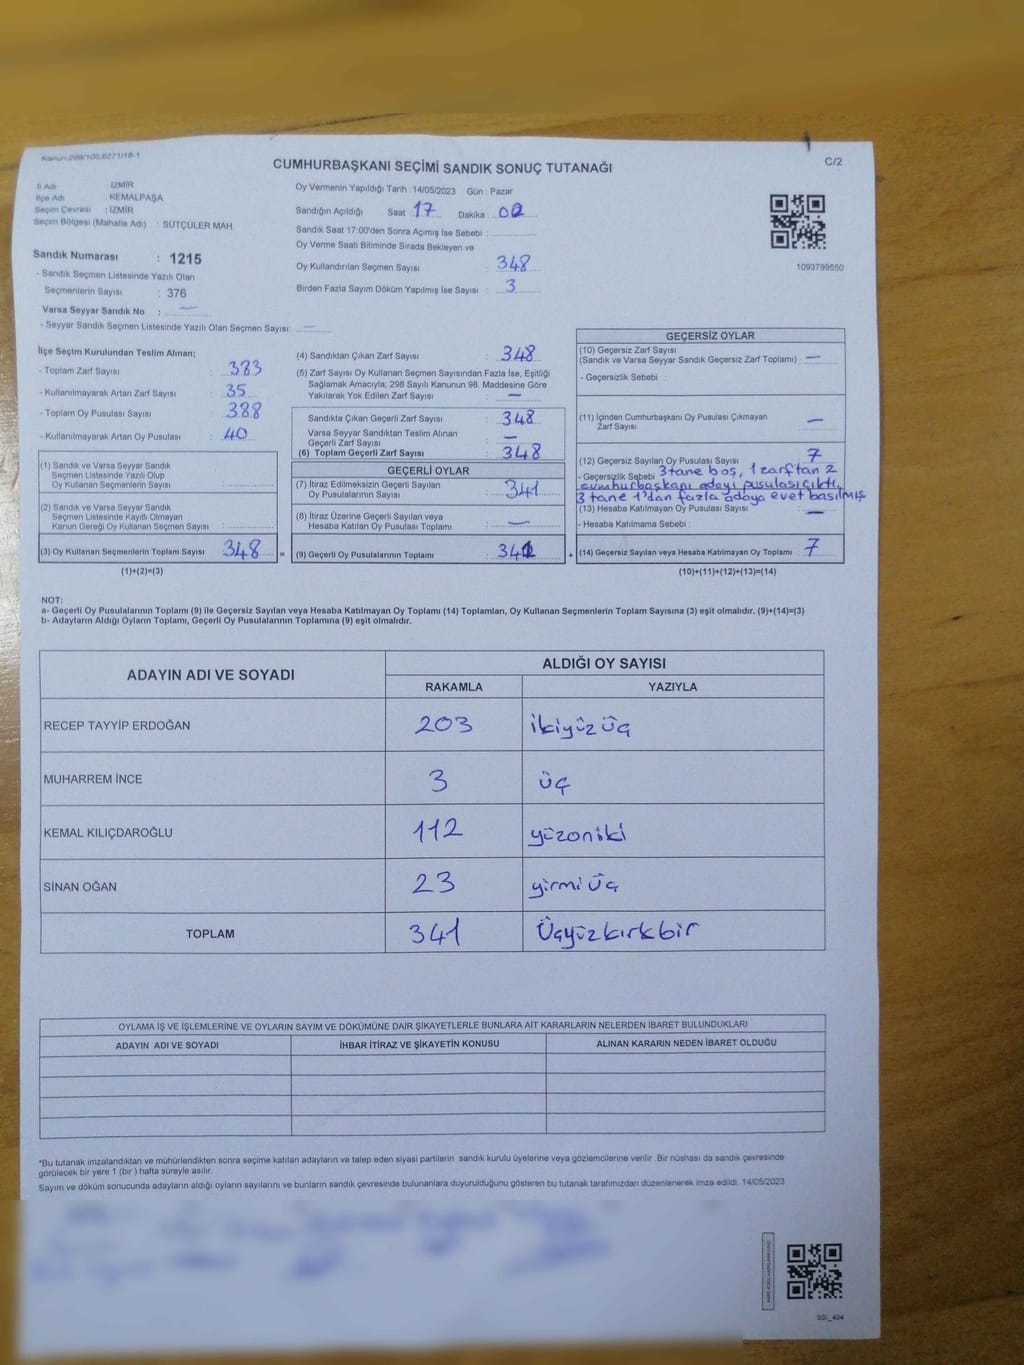 Kanun:298/105,6271/18-1
CUMHURBAŞKANI SEÇİMİ SANDIK SONUÇ TUTANAĞI
C/2
İl Adı : İZMİR
İlçe Adı : KEMALPAŞA
Seçim Çevresi : İZMİR
Seçim Bölgesi (Mahalle Adı) : SÜTÇÜLER MAH.
Sandık Numarası : 1215
- Sandık Seçmen Listesinde Yazılı Olan
Seçmenlerin Sayısı : 376
Varsa Seyyar Sandık No : —
- Seyyar Sandık Seçmen Listesinde Yazılı Olan Seçmen Sayısı: —
Oy Vermenin Yapıldığı Tarih : 14/05/2023 Gün : Pazar
Sandığın Açıldığı Saat 17 Dakika : 02
Sandık Saat 17:00'den Sonra Açımış İse Sebebi :
Oy Verme Saati Bitiminde Sırada Bekleyen ve
Oy Kullandırılan Seçmen Sayısı : 348
Birden Fazla Sayım Döküm Yapılmış İse Sayısı : 3
1093799550
İlçe Seçim Kurulundan Teslim Alınan;
- Toplam Zarf Sayısı : 383
- Kullanılmayarak Artan Zarf Sayısı : 35
- Toplam Oy Pusulası Sayısı : 388
- Kullanılmayarak Artan Oy Pusulası : 40
(1) Sandık ve Varsa Seyyar Sandık
Seçmen Listesinde Yazılı Olup
Oy Kullanan Seçmenlerin Sayısı :
(2) Sandık ve Varsa Seyyar Sandık
Seçmen Listesinde Kayıtlı Olmayan
Kanun Gereği Oy Kullanan Seçmen Sayısı :
(3) Oy Kullanan Seçmenlerin Toplam Sayısı : 348 =
(1)+(2)=(3)
(4) Sandıktan Çıkan Zarf Sayısı : 348
(5) Zarf Sayısı Oy Kullanan Seçmen Sayısından Fazla İse, Eşitliği
Sağlamak Amacıyla, 298 Sayılı Kanunun 98. Maddesine Göre
Yakılarak Yok Edilen Zarf Sayısı : —
Sandıkta Çıkan Geçerli Zarf Sayısı : 348
Varsa Seyyar Sandıktan Teslim Alınan
Geçerli Zarf Sayısı : —
(6) Toplam Geçerli Zarf Sayısı : 348
GEÇERLİ OYLAR
(7) İtiraz Edilmeksizin Geçerli Sayılan
Oy Pusulalarının Sayısı : 341
(8) İtiraz Üzerine Geçerli Sayılan veya
Hesaba Katılan Oy Pusulası Toplamı : —
(9) Geçerli Oy Pusulalarının Toplamı : 341 +
GEÇERSİZ OYLAR
(10) Geçersiz Zarf Sayısı
(Sandık ve Varsa Seyyar Sandık Geçersiz Zarf Toplamı) : —
- Geçersizlik Sebebi :
(11) İçinden Cumhurbaşkanı Oy Pusulası Çıkmayan
Zarf Sayısı : —
(12) Geçersiz Sayılan Oy Pusulası Sayısı : 7
- Geçersizlik Sebebi 3 tane boş, 1 zarftan 2
cumhurbaşkanı adayı pusulası çıktı,
3 tane 1'dan fazla adaya evet basılmış
(13) Hesaba Katılmayan Oy Pusulası Sayısı : —
- Hesaba Katılmama Sebebi :
(14) Geçersiz Sayılan veya Hesaba Katılmayan Oy Toplamı : 7
(10)+(11)+(12)+(13)=(14)
NOT:
a- Geçerli Oy Pusulalarının Toplamı (9) ile Geçersiz Sayılan veya Hesaba Katılmayan Oy Toplamı (14) Toplamları, Oy Kullanan Seçmenlerin Toplam Sayısına (3) eşit olmalıdır. (9)+(14)=(3)
b- Adayların Aldığı Oyların Toplamı, Geçerli Oy Pusulalarının Toplamına (9) eşit olmalıdır.
ADAYIN ADI VE SOYADI
ALDIĞI OY SAYISI
RAKAMLA YAZIYLA
RECEP TAYYİP ERDOĞAN 203 ikiyüz üç
MUHARREM İNCE 3 üç
KEMAL KILIÇDAROĞLU 112 yüzoniki
SİNAN OĞAN 23 yirmi üç
TOPLAM 341 Üçyüzkırkbir
OYLAMA İŞ VE İŞLEMLERİNE VE OYLARIN SAYIM VE DÖKÜMÜNE DAİR ŞİKAYETLERLE BUNLARA AİT KARARLARIN NELERDEN İBARET BULUNDUKLARI
ADAYIN ADI VE SOYADI İHBAR İTİRAZ VE ŞİKAYETİN KONUSU ALINAN KARARIN NEDEN İBARET OLDUĞU
*Bu tutanak imzalandıktan ve mühürlendikten sonra seçime katılan adayların ve talep eden siyasi partilerin sandık kurulu üyelerine veya gözlemcilerine verilir .Bir nüshası da sandık çevresinde
görülecek bir yere 1 (bir ) hafta süreyle asılır.
Sayım ve döküm sonucunda adayların aldığı oyların sayılarını ve bunların sandık çevresinde bulunanlara duyurulduğunu gösteren bu tutanak tarafımızdan düzenlenerek imza edildi. 14/05/2023